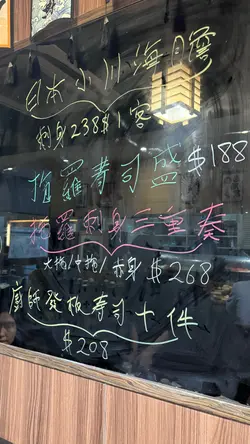 日本小川海膽
刺身238$1客
指羅壽司盛$188
指羅刺身三重奏
大指/中指/赤身 $268
廚師發板壽司十件
$208